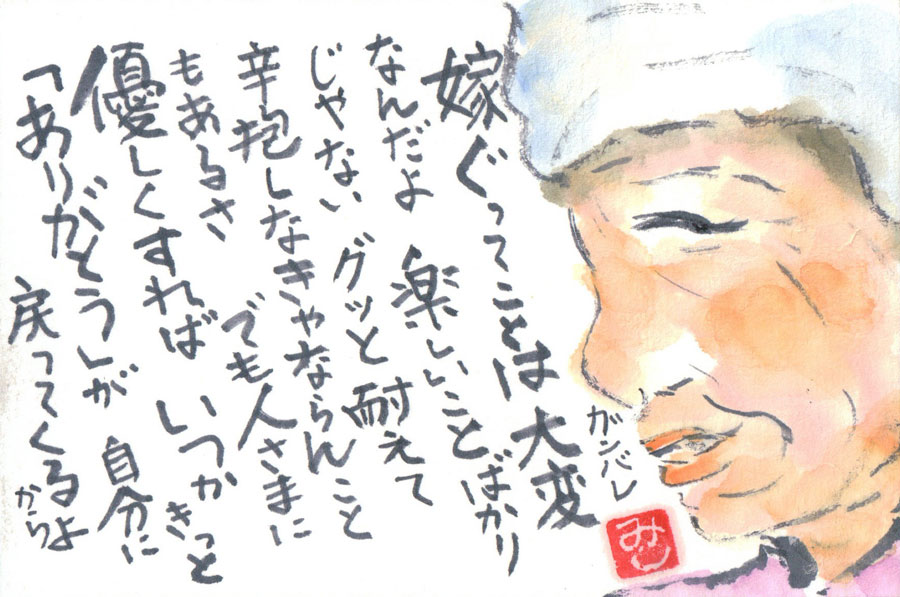 嫁ぐってことは大変
なんだよ 楽しいことばかり
じゃない グッと耐えて
辛抱しなきゃならんこと
もあるさ でも人さまに
優しくすれば いつかきっと
「ありがとう」が 自分に
戻ってくるよ
から
ガンバレ